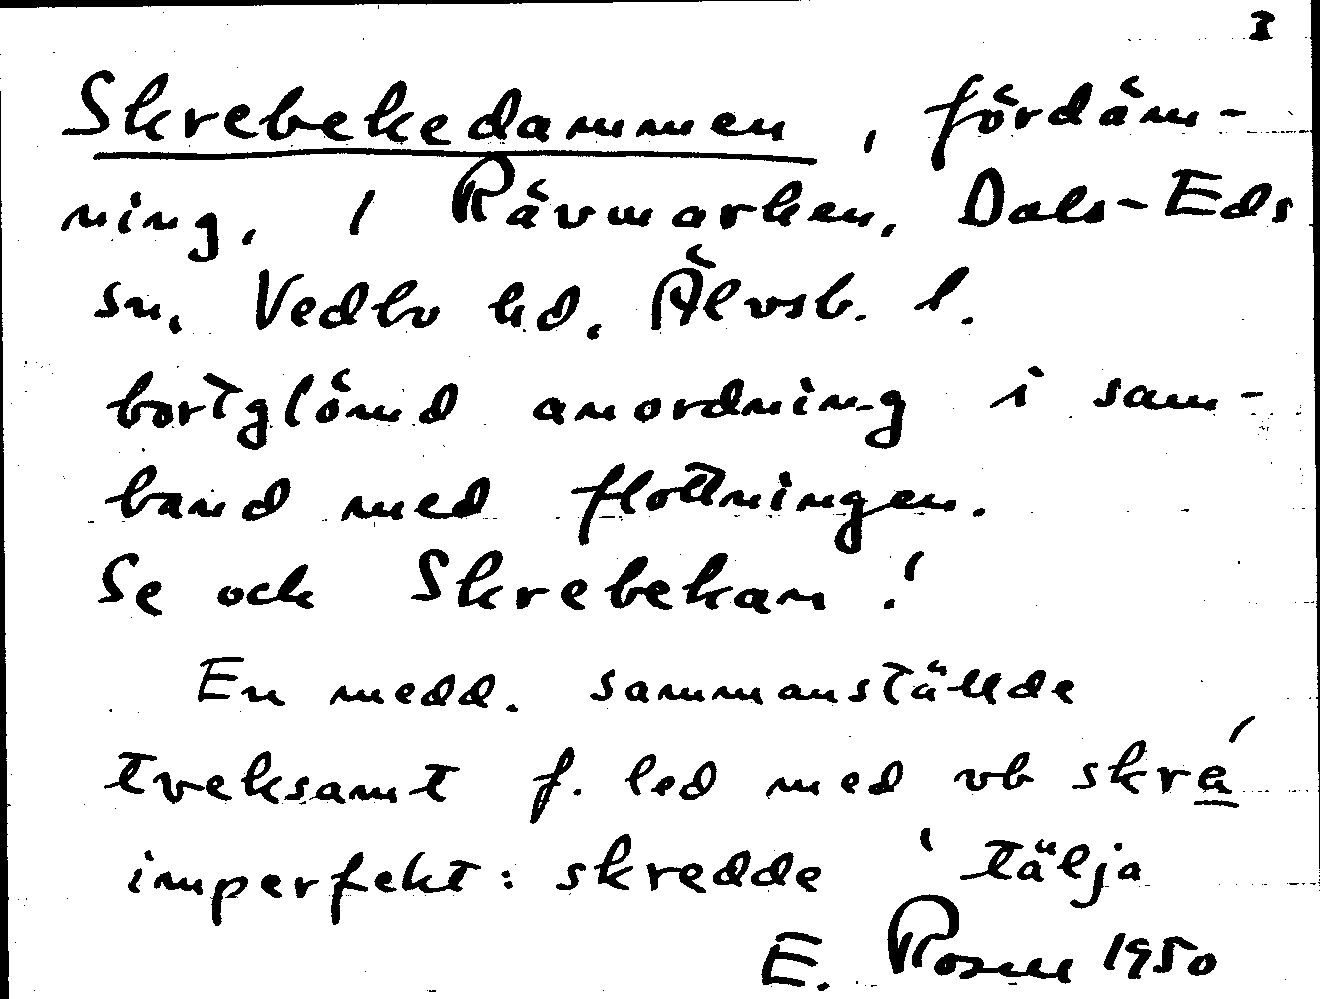 I
Skrebekedammen, fördäm-
ning, i Rävmarken, Dals-Eds
sn, Vedbo hd, Älvsb. l.
bortglömd anordning i sam-
band med flottningen.
Se och Skrebekan!
En medd. sammanställde
tveksamt f. led med vb skrá
imperfekt: skredde ' tälja
E. Rosell 1950